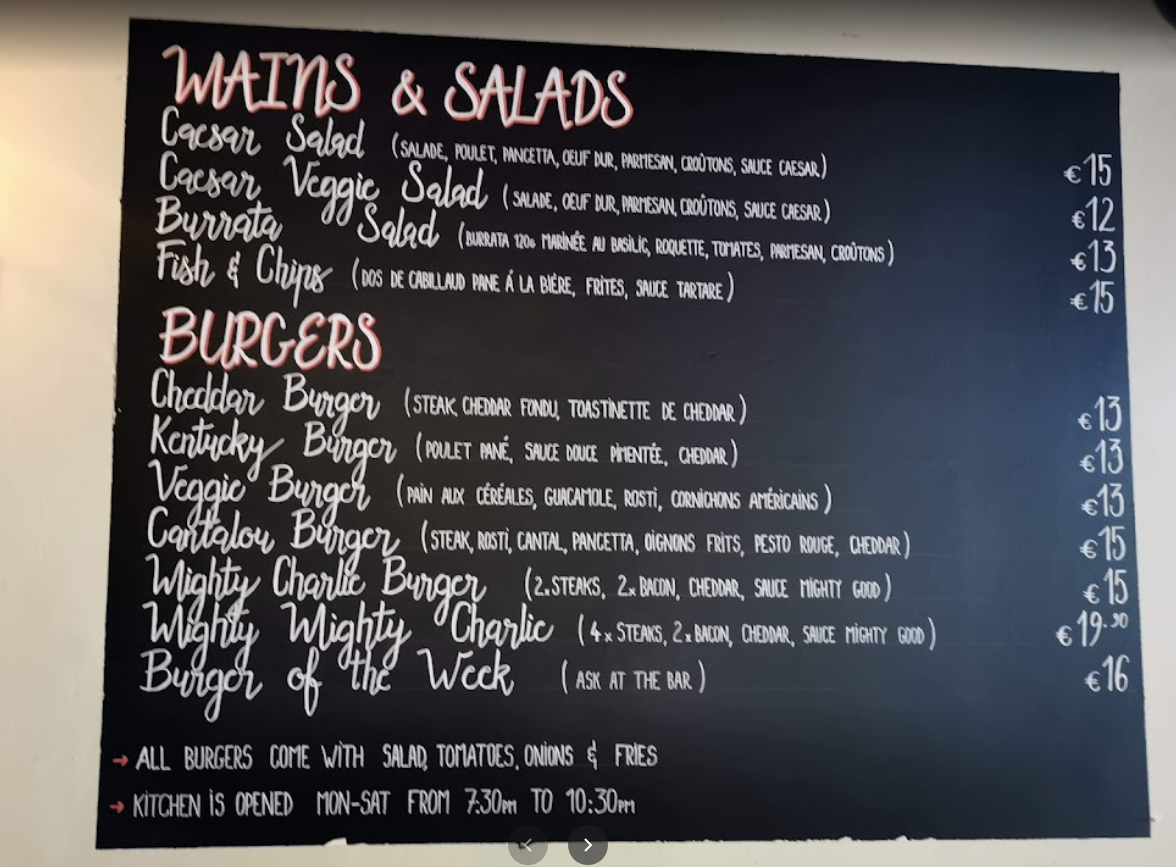 MAINS & SALADS
Caesar Salad (SALADE, POULET, PANCETTA, OEUF DUR, PARMESAN, CROÛTONS, SAUCE CAESAR) €15
Caesar Veggie Salad (SALADE, OEUF DUR, PARMESAN, CROÛTONS, SAUCE CAESAR) €12
Burrata Salad (BURRATA 120G MARINÉE AU BASILIC, ROQUETTE, TOMATES, PARMESAN, CROÛTONS) €13
Fish & Chips (DOS DE CABILLAUD PANE Á LA BIÈRE, FRITES, SAUCE TARTARE) €15
BURGERS
Cheddar Burger (STEAK, CHEDDAR FONDU, TOASTINETTE DE CHEDDAR) €13
Kentucky Burger (POULET PANÉ, SAUCE DOUCE PIMENTÉE, CHEDDAR) €13
Veggie Burger (PAIN AUX CÉRÉALES, GUACAMOLE, ROSTI, CORNICHONS AMÉRICAINS) €13
Cantalou Burger (STEAK, ROSTI, CANTAL, PANCETTA, OIGNONS FRITS, PESTO ROUGE, CHEDDAR) €15
Mighty Charlie Burger (2x STEAKS, 2x BACON, CHEDDAR, SAUCE MIGHTY GOOD) €15
Mighty Mighty Charlie (4x STEAKS, 2x BACON, CHEDDAR, SAUCE MIGHTY GOOD) €19.50
Burger of the Week (ASK AT THE BAR) €16
→ ALL BURGERS COME WITH SALAD, TOMATOES, ONIONS & FRIES
→ KITCHEN IS OPENED MON-SAT FROM 7:30PM TO 10:30PM